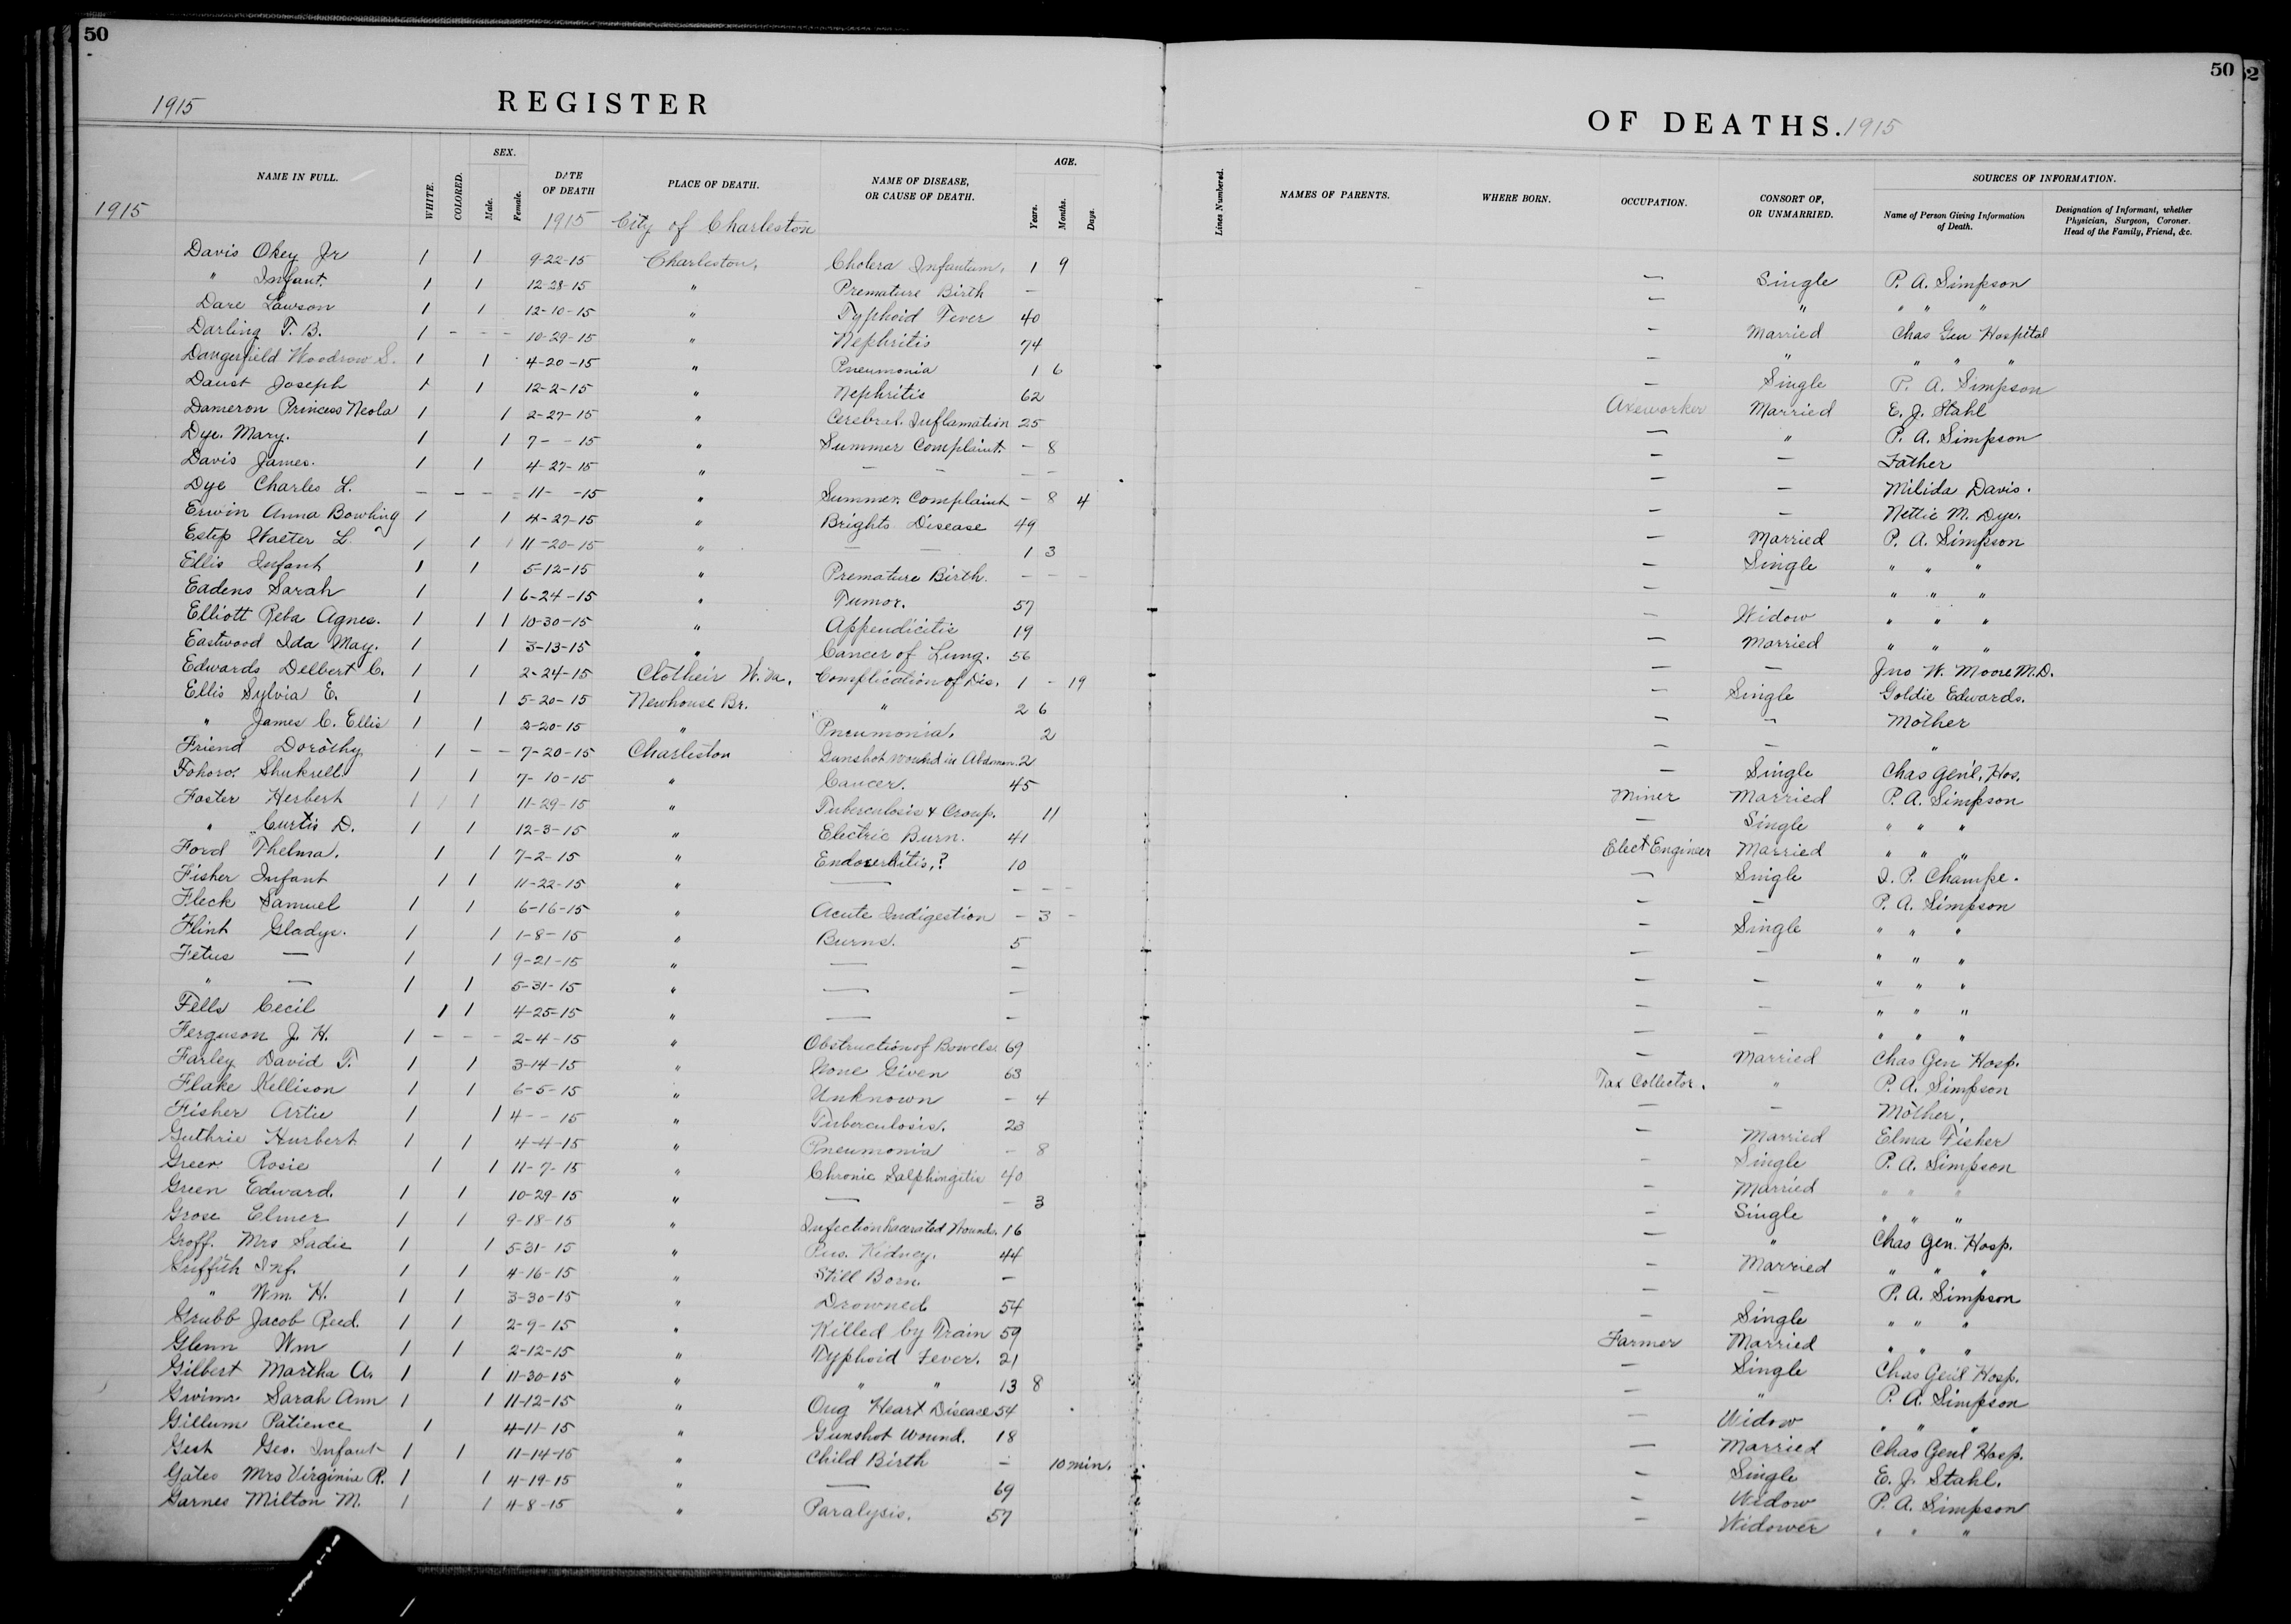 50
50
52
1915
REGISTER
OF DEATHS. 1915
NAME IN FULL. WHITE. COLORED. SEX. Male. Female. DATE OF DEATH PLACE OF DEATH. NAME OF DISEASE, OR CAUSE OF DEATH. AGE. Years. Months. Days. Lines Numbered. NAMES OF PARENTS. WHERE BORN. OCCUPATION. CONSORT OF, OR UNMARRIED. SOURCES OF INFORMATION. Name of Person Giving Information of Death. Designation of Informant, whether Physician, Surgeon, Coroner. Head of the Family, Friend, &c.
1915 1915 City of Charleston
Davis Okey Jr 1 1 9-22-15 Charleston. Cholera Infantum. 1 9 — Single P. A. Simpson
" Infant. 1 1 12-28-15 " Premature Birth — — " " " "
Dare Lawson 1 1 12-10-15 " Typhoid Fever 40 — Married Chas Gen Hospital
Darling T. B. 1 - - - 10-29-15 " Nephritis 74 — " " " "
Dangerfield Woodrow S. 1 1 4-20-15 " Pneumonia 1 6 — Single P. A. Simpson
Daust Joseph 1 1 12-2-15 " Nephritis 62 Axeworker Married E. J. Stahl
Dameron Princess Neola 1 1 2-27-15 " Cerebral Inflamation 25 — " P. A. Simpson
Dye. Mary. 1 1 7- -15 " Summer Complaint. — 8 — — Father
Davis James. 1 1 4-27-15 " — — — — — — Milida Davis.
Dye Charles L. - - - - 11- -15 " Summer Complaint — 8 4 — — Nettie M. Dye.
Erwin Anna Bowling 1 1 4-27-15 " Brights Disease 49 — Married P. A. Simpson
Estep Walter L. 1 1 11-20-15 " — — 1 3 — Single " " "
Ellis Infant 1 1 5-12-15 " Premature Birth. — — — — — " " "
Eadens Sarah 1 1 6-24-15 " Tumor. 57 — Widow " " "
Elliott Reba Agnes. 1 1 1 10-30-15 " Appendicitis 19 — Married " " "
Eastwood Ida May. 1 1 3-13-15 " Cancer of Lung. 56 — — Jno W. Moore M.D.
Edwards Delbert C. 1 1 2-24-15 Clotheir W. Va. Complication of Dis. 1 - 19 — Single Goldie Edwards.
Ellis Sylvia E. 1 1 5-20-15 Newhouse Br. " 2 6 — " Mother
" James C. Ellis 1 1 2-20-15 " Pneumonia. 2 — — "
Friend Dorothy 1 - - 7-20-15 Charleston Gunshot Wound in Abdomen. 2 — Single Chas Gen'l. Hos.
Fohoro. Shukrell 1 1 7-10-15 " Cancer. 45 Miner Married P. A. Simpson
Foster Herbert 1 1 1 11-29-15 " Tuberculosis & Croup. 11 — Single " " "
" Curtis D. 1 1 12-3-15 " Electric Burn. 41 Elect Engineer Married " " "
Ford Thelma. 1 1 7-2-15 " Endocerditis,? 10 — Single I. P. Champe.
Fisher Infant 1 1 11-22-15 " — — — — — — P. A. Simpson
Fleck Samuel 1 1 6-16-15 " Acute Indigestion — 3 — — Single " " "
Flint Gladys. 1 1 1-8-15 " Burns. 5 — — " " "
Fetus — 1 1 9-21-15 " — — — — " " "
" — 1 1 5-31-15 " — — — — " " "
Fells Cecil 1 1 4-25-15 " — — — — " " "
Ferguson J. H. 1 - - - 2-4-15 " Obstruction of Bowels 69 — Married Chas Gen Hosp.
Farley David T. 1 1 3-14-15 " None Given 63 Tax Collector. " P. A. Simpson
Flake Kellison 1 1 6-5-15 " Unknown — 4 — — Mother.
Fisher Artie 1 1 4- - 15 " Tuberculosis. 23 — Married Elma Fisher
Guthrie Hurbert 1 1 4-4-15 " Pneumonia — 8 — Single P. A. Simpson
Greer Rosie 1 1 11-7-15 " Chronic Salphingitis 40 — Married " " "
Green Edward. 1 1 10-29-15 " — — 3 — Single " " "
Grose Elmer 1 1 9-18-15 " Infection Lacerated Wounds. 16 — " Chas Gen. Hosp.
Groff. Mrs Sadie 1 1 5-31-15 " Pus. Kidney. 44 — Married " " "
Griffith Inf. 1 1 4-16-15 " Still Born. — — — P. A. Simpson
" Wm. H. 1 1 3-30-15 " Drowned 54 — Single " " "
Grubb Jacob Reed. 1 1 2-9-15 " Killed by Train 59 Farmer Married " " "
Glenn Wm 1 1 2-12-15 " Typhoid Fever. 21 — Single Chas Gen'l Hosp.
Gilbert Martha A. 1 1 11-30-15 " " " 13 8 — " P. A. Simpson
Gwinn Sarah Ann 1 1 11-12-15 " Org Heart Disease 54 — Widow " " "
Gillum Patience 1 4-11-15 " Gunshot Wound. 18 — Married Chas Genl Hosp.
Gest Geo. Infant 1 1 11-14-15 " Child Birth — 10 min. — Single E. J. Stahl.
Gates Mrs Virginia R. 1 1 4-19-15 " — 69 — Widow P. A. Simpson
Garnes Milton M. 1 1 4-8-15 " Paralysis. 57 — Widower " " "